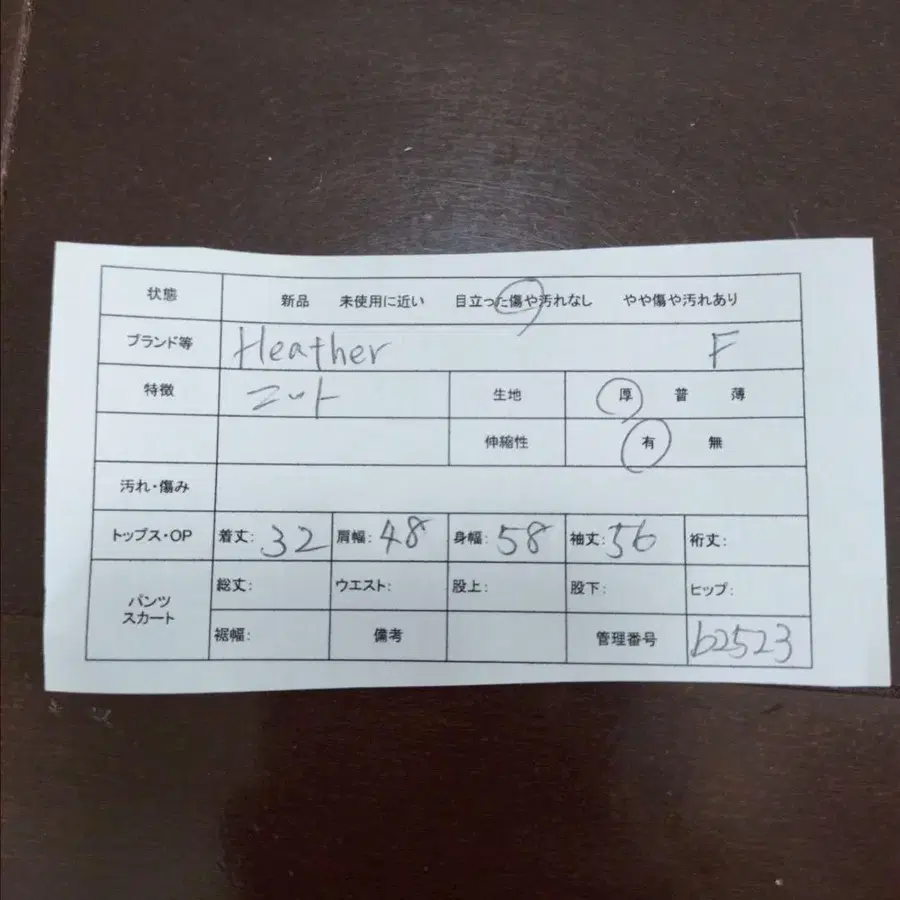 状態 新品 未使用に近い 目立った傷や汚れなし やや傷や汚れあり
ブランド等 Heather F
特徴 ニット 生地 厚 普 薄
伸縮性 有 無
汚れ・傷み
トップス・OP 着丈: 32 肩幅: 48 身幅: 58 袖丈: 56 裄丈:
パンツ スカート 総丈: ウエスト: 股上: 股下: ヒップ:
裾幅: 備考 管理番号 b2523